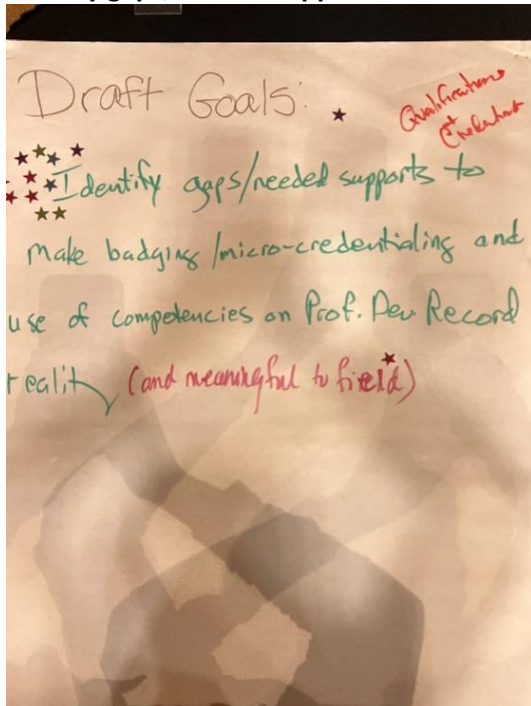 Draft Goals:
Qualifications
Identify gaps/needed supports to
make badging/micro-credentialing and
use of competencies on Prof. Dev Record
reality (and meaningful to field)